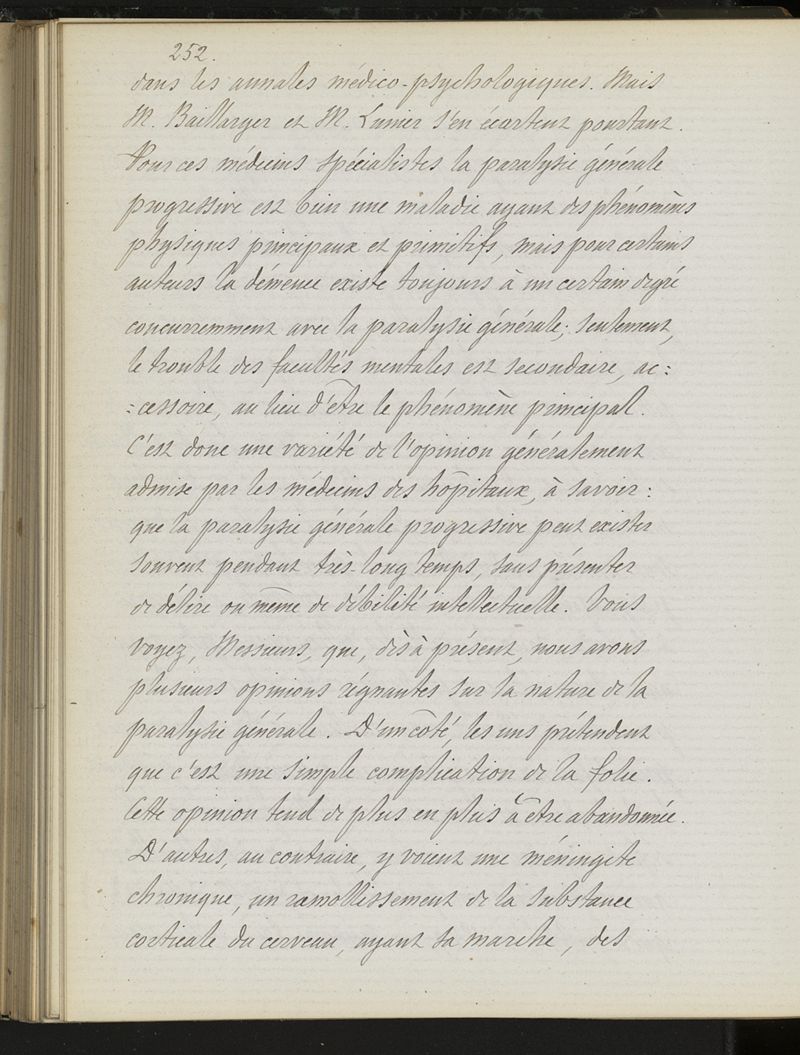 252.
dans les annales médico-psychologiques. Mais
M. Baillarger et M. Lunier s'en écartent pourtant.
Pour ces médecins spécialistes la paralysie générale
progressive est bien une maladie ayant des phénomènes
physiques principaux et primitifs, mais pour certains
auteurs la démence existe toujours à un certain degré
concurremment avec la paralysie générale; seulement,
le trouble des facultés mentales est secondaire, ac:
:cessoire, au lieu d'être le phénomène principal.
C'est donc une variété de l'opinion généralement
admise par les médecins des hôpitaux, à savoir:
que la paralysie générale progressive peut exister
souvent pendant très-long temps, sans présenter
de délire ou même de débilité intellectuelle. Vous
voyez, Messieurs, que, dès à présent, nous avons
plusieurs opinions régnantes sur la nature de la
paralysie générale. D'un côté, les uns prétendent
que c'est une simple complication de la folie.
Cette opinion tend de plus en plus à être abandonnée.
D'autres, au contraire, y voient une méningite
chronique, un ramollissement de la substance
corticale du cerveau, ayant sa marche, des